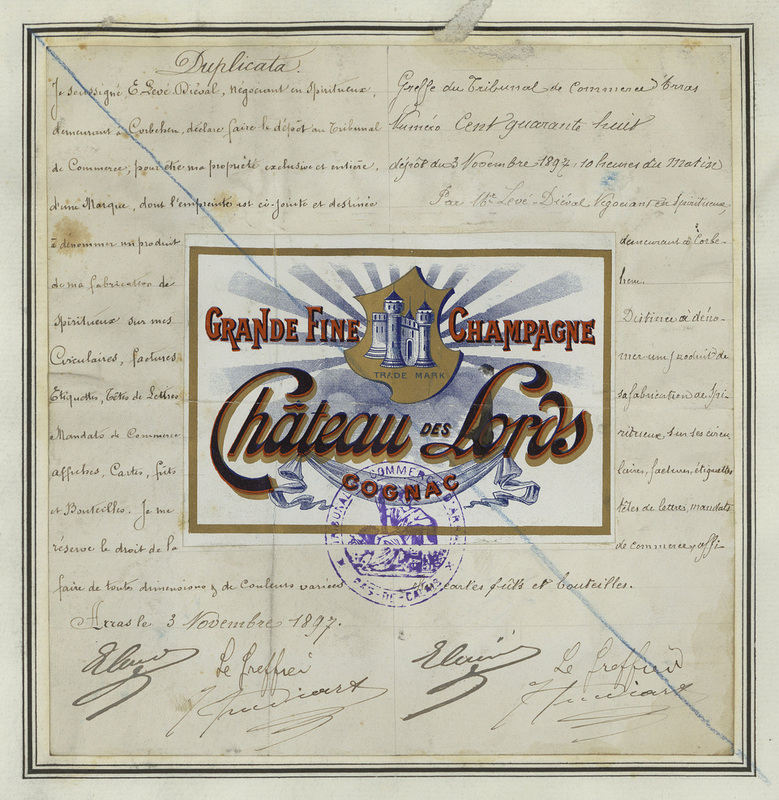 Duplicata.
Je soussigné, E. Levé Diéval, négociant en Spiritueux,
demeurant à Corbehem, déclare faire le dépôt au Tribunal
de Commerce, pour être ma propriété exclusive et entière,
d'une Marque, dont l'empreinte est ci-jointe et destinée
à dénommer un produit
de ma fabrication de
Spiritueux sur mes
Circulaires, factures
Etiquettes, Têtes de Lettres
Mandats de Commerce
affiches, Cartes, fûts
et Bouteilles. Je me
réserve le droit de la
faire de toutes dimensions & de Couleurs variées
Arras le 3 Novembre 1897.
Le Greffier
Greffe du Tribunal de Commerce d'Arras
Numéro Cent quarante huit
dépôt du 3 Novembre 1897, 10 heures du matin
Par Mr Levé-Diéval Négociant en Spiritueux,
demeurant à Corbe-
hem.
Destinée à déno-
mer un produit de
sa fabrication de Spi-
ritueux, sur ses circu-
laires, factures, étiquettes
têtes de lettres, mandats
de commerce, affi-
cartes fûts et bouteilles.
Le Greffier
GRANDE FINE CHAMPAGNE
TRADE MARK
Château DES Lords
COGNAC
TRIBUNAL DE COMMERCE D'ARRAS
PAS-DE-CALAIS